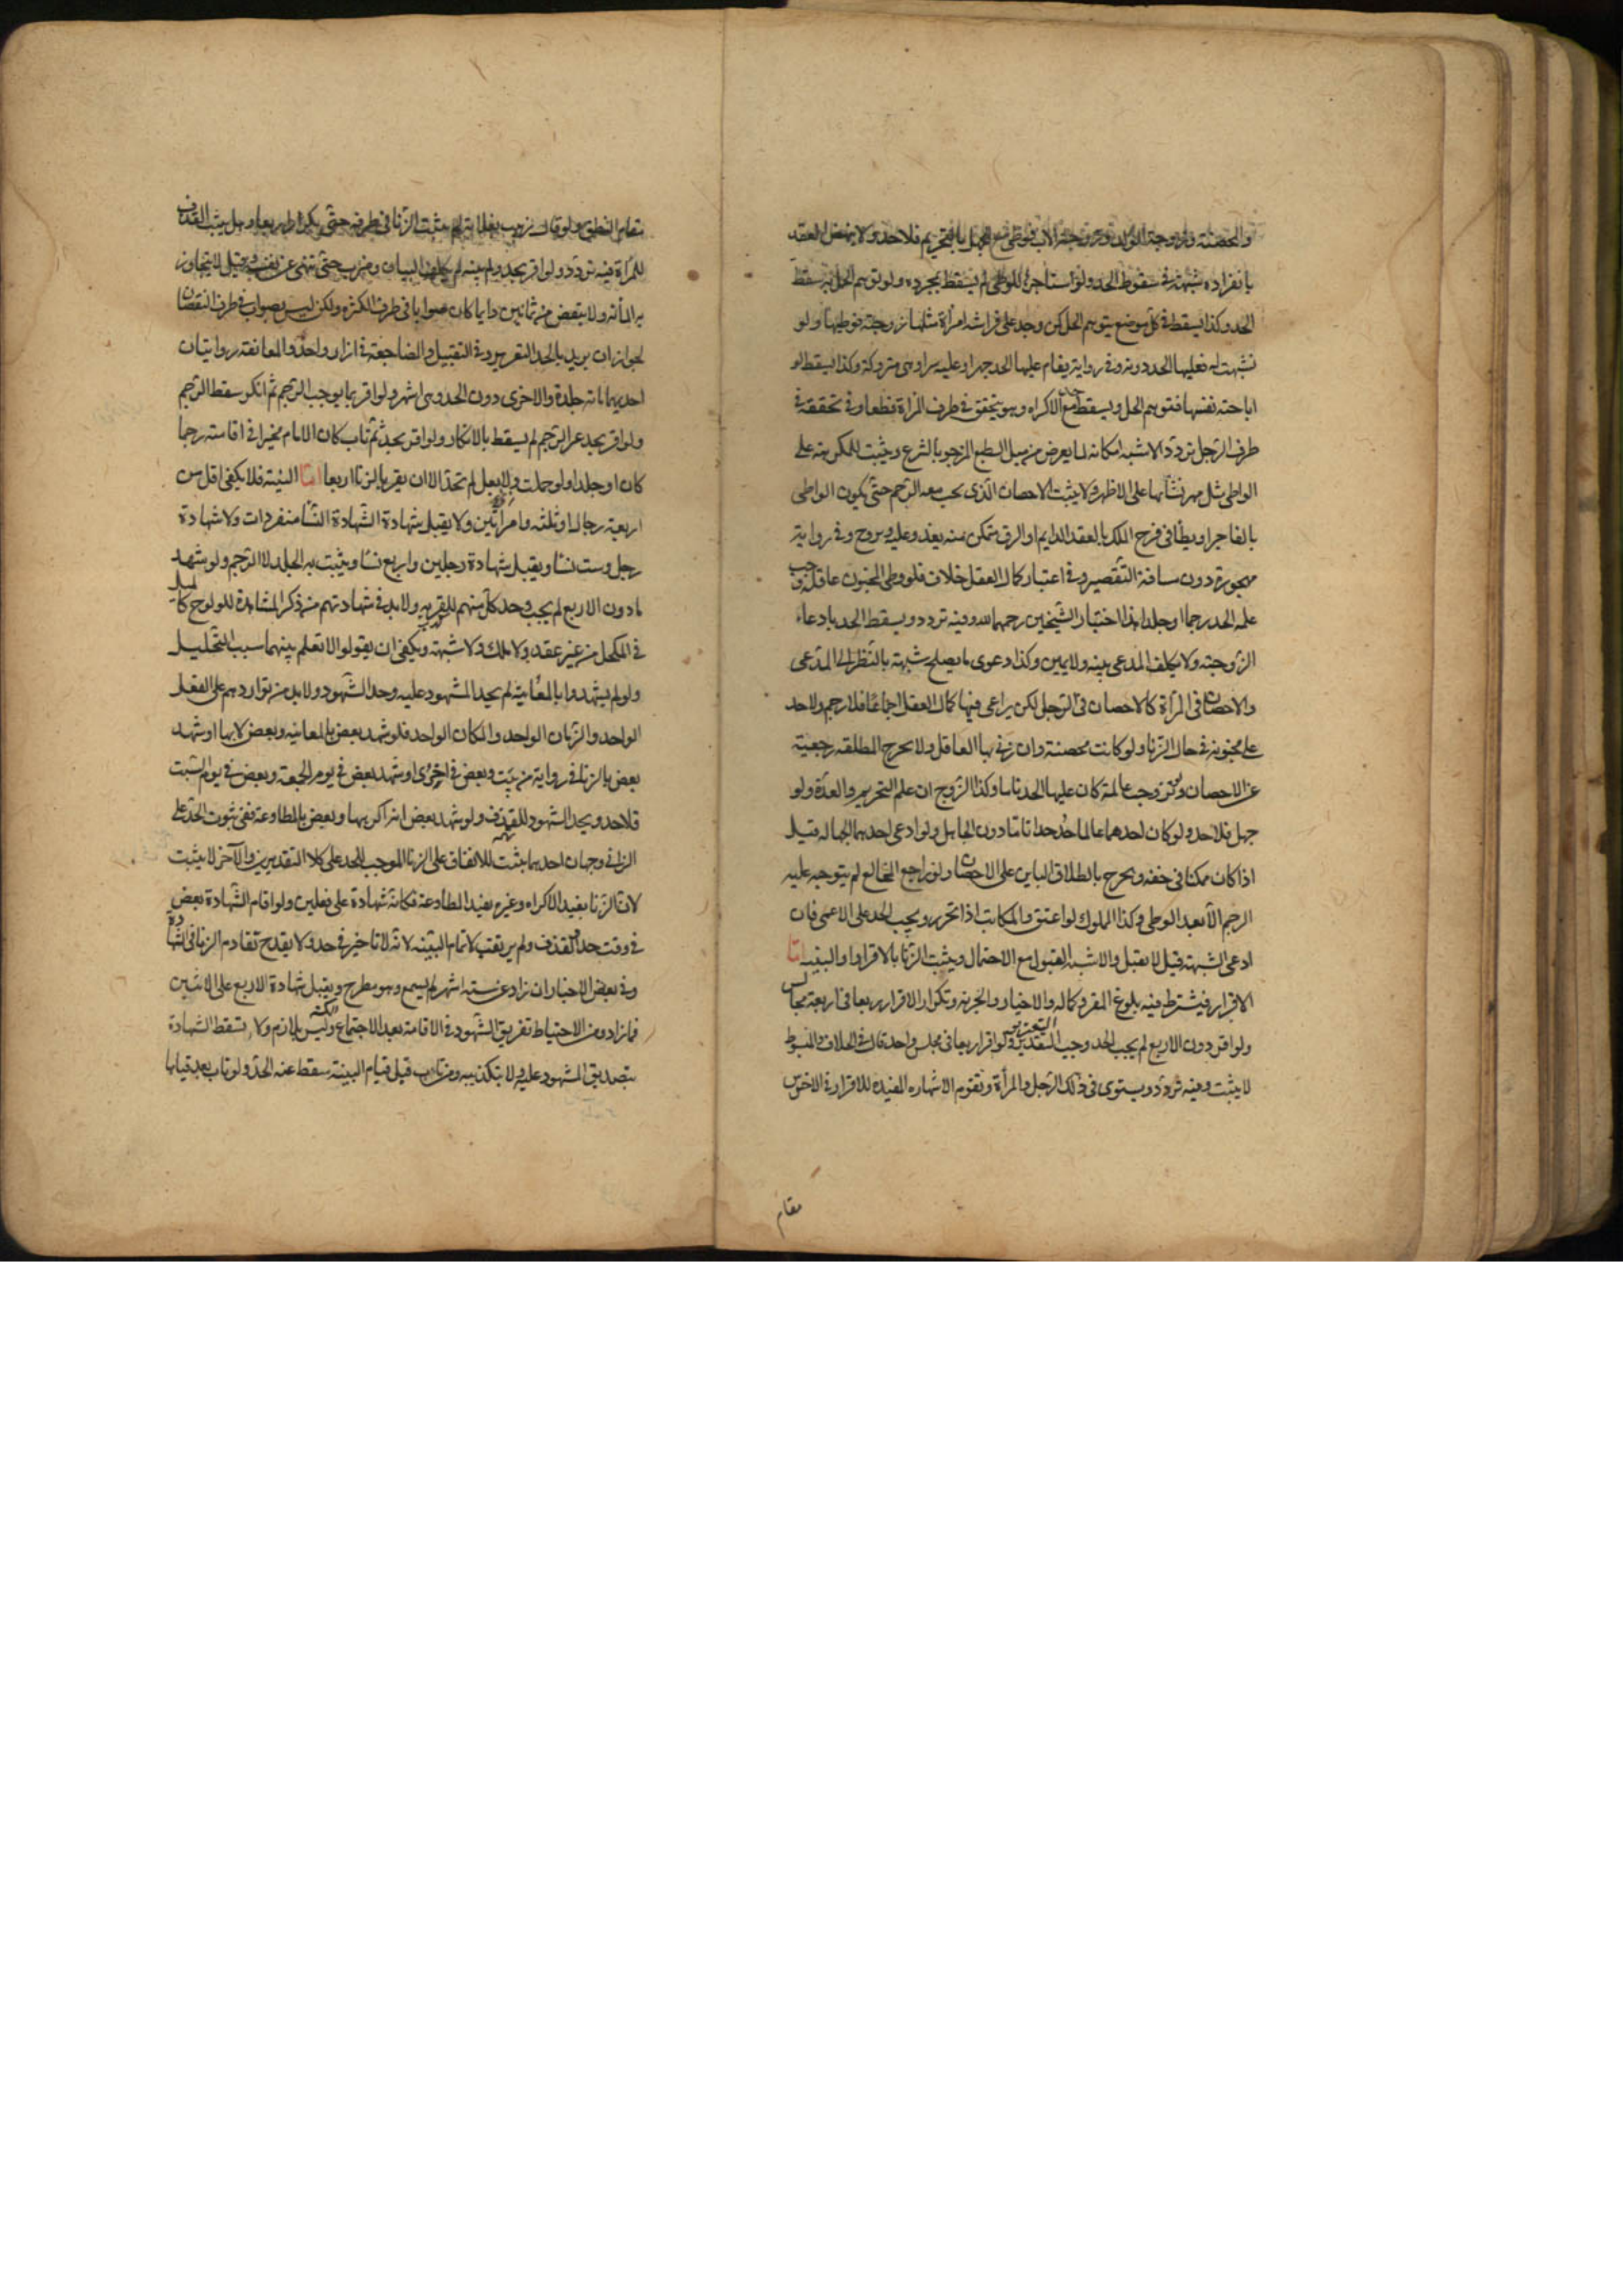 والمحصنة وزوجة الولد وزوجة الاب فوطئ مع الجهل بالتحريم فلا حد ولا ينهض العقد
بانفراده شبهة في سقوط الحد ولو استاجرها للوطى لم يسقط بمجرده ولو توهم الحل به سقط
الحد وكذا يسقط في كل موضع يتوهم الحل كمن وجد على فراشه امراة مثلها زوجته فوطيها ولو
تشبهت له فعليها الحد دونه وفي رواية يقام عليها الحد جهرا وعليه سرا وهى متروكة وكذا يسقط لو
اباحته نفسها فتوهم الحل ويسقط مع الاكراه وهو يتحقق في طرف المراة قطعا وفي تحققه في
طرف الرجل تردد الاشبه امكانه لما يعرض من ميل الطبع المزجور بالشرع ويثبت للمكرهة على
الواطى مثل مهر نسائها على الاظهر ولا يثبت الاحصان الذى يجب معه الرجم حتى يكون الواطى
بالغا حرا ويطأ في فرج المملك بالعقد الدايم او الرق متمكن منه يغدو عليه ويروح وفي رواية
مهجورة دون مسافة التقصير وفي اعتبار كمال العقل خلاف فلو وطى المجنون عاقلة وجب
عليه الحد رجما او جلدا هذا اختيار الشيخين رحمهما الله وفيه تردد ويسقط الحد بادعاء
الزوجية ولا يكلف المدعى بينه ولا يمين وكذا دعوى ما يصلح شبهة بالنظر الى المدعى
والاحصان في المرأة كالاحصان في الرجل لكن يراعى فيها كمال العقل اجماعا فلا رجم ولا حد
على مجنونة في حال الزنا ولو كانت محصنة وان زنى بها العاقل ولا تخرج المطلقه رجعية
عن الاحصان ولو تزوجت عالمة كان عليها الحد تاما وكذا الزوج ان علم التحريم والعدة ولو
جهل فلا حد ولو كان احدهما عالما حد حدا تاما دون الجاهل ولو ادعى احدهما الجهاله قبل
اذا كان ممكنا في حقه ويخرج بالطلاق الباين على الاحصان ولو راجع المخالع لم يتوجه عليه
الرجم الا بعد الوطى وكذا المملوك لو اعتق والمكاتب اذا تحرر ويجب الحد على الاعمى فان
ادعى الشبهة قيل لا يقبل والاشبه القبول مع الاحتمال ويثبت الزنا بالاقرار او البينه اما
الاقرار فيشترط فيه بلوغ المقر وكماله والاختيار والحريه وتكرار الاقرار اربعا في اربعة مجالس
ولو اقر دون الاربع لم يجب الحد وجب التعزير ولو اقر اربعا في مجلس واحد قال في الخلاف والمبسوط
لا يثبت وفيه تردد ويستوى في ذلك الرجل والمرأة وتقوم الاشاره المفيده للاقرار في الاخرس
مقام
مقام النطق ولو قال زنيت بفلانة لم يثبت الزنا في طرفه حتى يكرره اربعا وهل يثبت القذف
للمرأة فيه تردد ولو اقر بحد ولم يبينه لم يكلف البيان وضرب حتى ينهى عن نفسه وقيل لا يتجاوز
به المائه ولا ينقص من ثمانين وربما كان صوابا في طرف الكثرة ولكن ليس بصواب في طرف النقصان
لجواز ان يريد بالحد التعزير وفي التقبيل والمضاجعة في ازار واحد والمعانقة روايتان
احديهما مائة جلدة والاخرى دون الحد وهى اشهر ولو اقر بما يوجب الرجم ثم انكر سقط الرجم
ولو اقر بحد غير الرجم لم يسقط بالانكار ولو اقر بحد ثم تاب كان الامام مخيرا في اقامته رجما
كان او جلدا ولو حملت ولا بعل لم تحد الا ان يقر بالزنا اربعا اما البينة فلا يكفى اقل من
اربعة رجال او ثلثه وامراتين ولا يقبل شهادة الشهادة النسا منفردات ولا شهادة
رجل وست نسا ويقبل شهادة رجلين واربع نسا ويثبت به الجلد لا الرجم ولو شهد
ما دون الاربع لم يجب وحد كل منهم للفريه ولا بد في شهادتهم من ذكر المشاهدة للولوج كالميل
في المكحل من غير عقد ولا ملك ولا شبهة ويكفى ان يقولوا لا نعلم بينهما سبب التحليل
ولو لم يشهدوا بالمعاينة لم يحد المشهود عليه وحد الشهود ولا بد من تواردهم على الفعل
الواحد والزمان الواحد والمكان الواحد فلو شهد بعض بالمعاينه وبعض لا بها او شهد
بعض بالزنا في زواية من بيت وبعض في اخرى او شهد بعض في يوم الجمعة وبعض في يوم السبت
فلا حد ويحد الشهود للقذف ولو شهد بعض انه اكرهها وبعض بالمطاوعة ففي ثبوت الحد على
الزاني وجهان احدهما يثبت للاتفاق على الزنا الموجب للحد على كلا التقديرين والآخر لا يثبت
لان الزنا بقيد الاكراه وغيره بقيد المطاوعة فكانه شهادة على فعلين ولو اقام الشهادة بعض
في وقت حدوا للقذف ولم يرتقب لاتمام البينه لانه لا تاخير في حد ولا يقدح تقادم الزنا في الشهادة
وفي بعض الاخبار ان زاد عن سته اشهر لم يسمع وهو مطرح ويقبل شهادة الاربع على الاثنين
فما زاد ومن الاحتياط تفريق الشهود في الاقامة بعد الاجتماع وليس بلازم ولا تسقط الشهادة
بتصديق المشهود عليه ولا بتكذيبه ومن تاب قبل قيام البينة سقط عنه الحد ولو تاب بعد قيامها